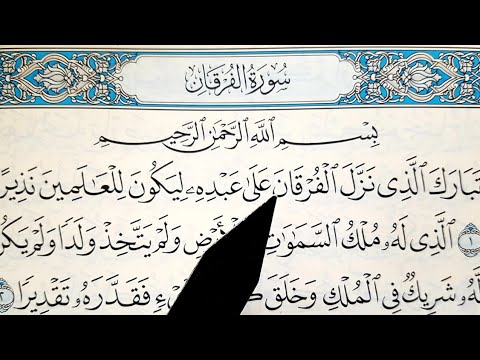 سُورَةُ الْفُرْقَانِ
بِسْمِ ٱللَّهِ ٱلرَّحْمَٰنِ ٱلرَّحِيمِ
تَبَارَكَ ٱلَّذِى نَزَّلَ ٱلْفُرْقَانَ عَلَىٰ عَبْدِهِۦ لِيَكُونَ لِلْعَٰلَمِينَ نَذِيرًا
١ ٱلَّذِى لَهُۥ مُلْكُ ٱلسَّمَٰوَٰتِ وَلَمْ يَتَّخِذْ وَلَدًا وَلَمْ يَكُن
لَّهُۥ شَرِيكٌ فِى ٱلْمُلْكِ وَخَلَقَ فَقَدَّرَهُۥ تَقْدِيرًا ٢